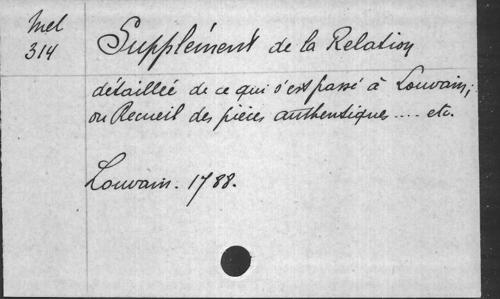 Mel
314
Supplément de la Relation
détaillée de ce qui s'est passé à Louvain;
ou Recueil des pièces authentiques .... etc.
Louvain. 1788.